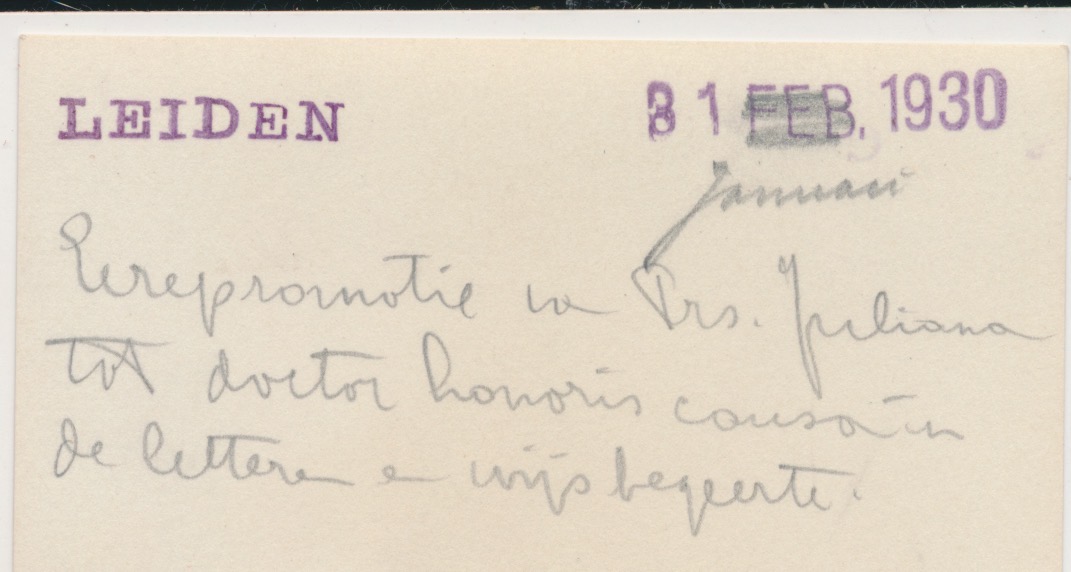 LEIDEN 31 FEB. 1930
Januari
Eerepromotie va Prs. Juliana
tot doctor honoris causa in
de lettere e wijsbegeerte.